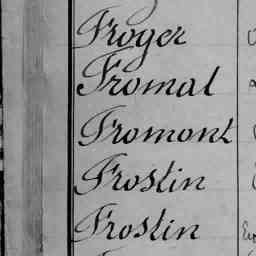 Froger
Fromal
Fromont
Frostin
Frostin